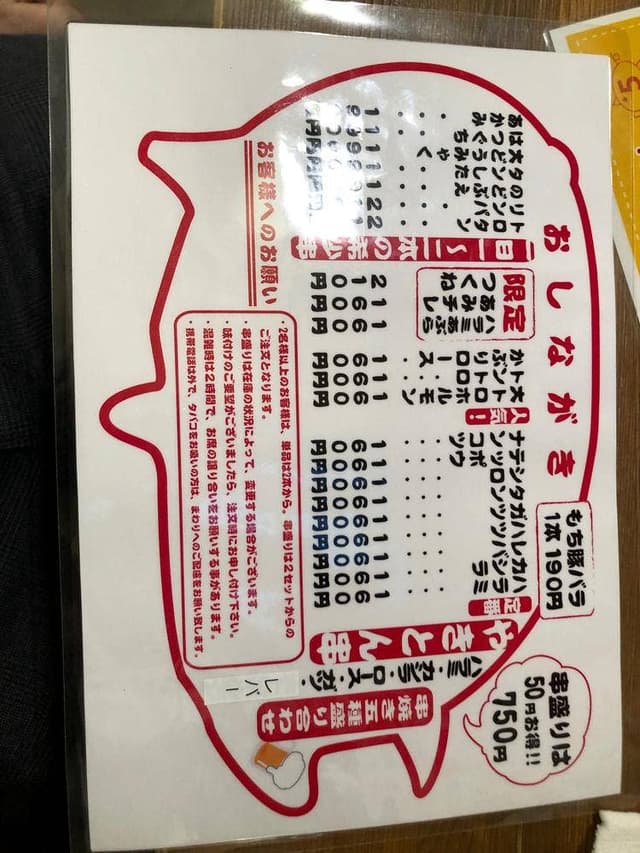 おしながき
もち豚バラ
1本190円
串盛りは
50円お得!!
750円
串焼き五種盛り合わせ
ハラミ・カシラ・ロース・ガツ・
レバー
やきとん串
定番
ハラミ・・・・160円
カシラ・・・・160円
レバ・・・・160円
ハツ・・・・160円
ガツ・・・・160円
タン・・・・160円
シロ・・・・160円
テッポウ・・160円
ナンコツ・・160円
人気!
ホルモン・160円
トントロ・・160円
かぶりロース・160円
限定
ハラミあぶら 160円
あみチレ 160円
つくね 210円
一日一〜二本の希少串
トロタン
のどぶえ
大どうみゃく
お客様へのお願い
・2名様以上のお客様は、単品は2本から。串盛りは2セットからの
ご注文となります。
・串盛りは在庫の状況によって、変更する場合がございます。
・味付けのご要望がございましたら、注文時にお申し付け下さい。
・混雑時は2時間で、お席の譲り合いをお願いする事があります。
・携帯電話は外で、タバコをお吸いの方は、まわりへのご配慮をお願い致します。